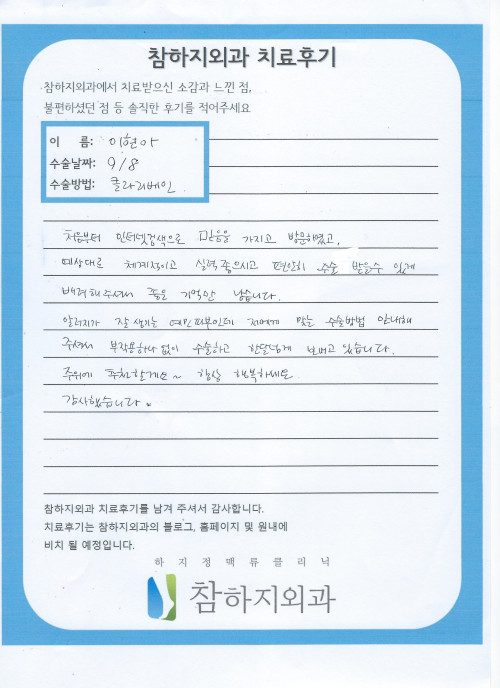 참하지외과 치료후기
참하지외과에서 치료받으신 소감과 느낀 점,
불편하셨던 점 등 솔직한 후기를 적어주세요
이 름: 이현아
수술날짜: 9/8
수술방법: 클라리베인
처음부터 인터넷검색으로 믿음을 가지고 방문하였고,
예상대로 체계적이고 실력 좋으시고 편안히 수술 받을수 있게
배려해주셔서 좋은 기억만 남습니다.
알러지가 잘 생기는 예민피부인데 저에게 맞는 수술방법 안내해
주셔서 부작용하나 없이 수술하고 한달넘게 보내고 있습니다.
주위에 추천할게요~ 항상 행복하세요
감사했습니다.
참하지외과 치료후기를 남겨 주셔서 감사합니다.
치료후기는 참하지외과의 블로그, 홈페이지 및 원내에
비치 될 예정입니다.
하지정맥류클리닉
참하지외과